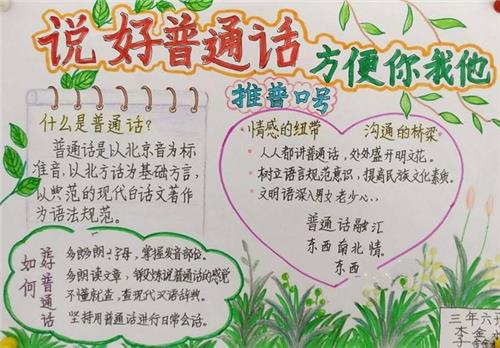 说好普通话
方便你我他
推普口号
什么是普通话?
普通话是以北京音为标
准音,以北方话为基础方言,
以典范的现代白话文著作
为语法规范。
情感的纽带 沟通的桥梁
人人都讲普通话,处处盛开明文花。
树立语言规范意识,提高民族文化素质。
文明语深入男女老少心,
普通话融汇
东西南北情。
东西
如何
说好普通话
多朗朗 字母,掌握发音部位。
多朗读文章,锻炼说普通话的感觉
不懂就查,查现代汉语辞典。
坚持用普通话进行日常会话。
三年六班
李金